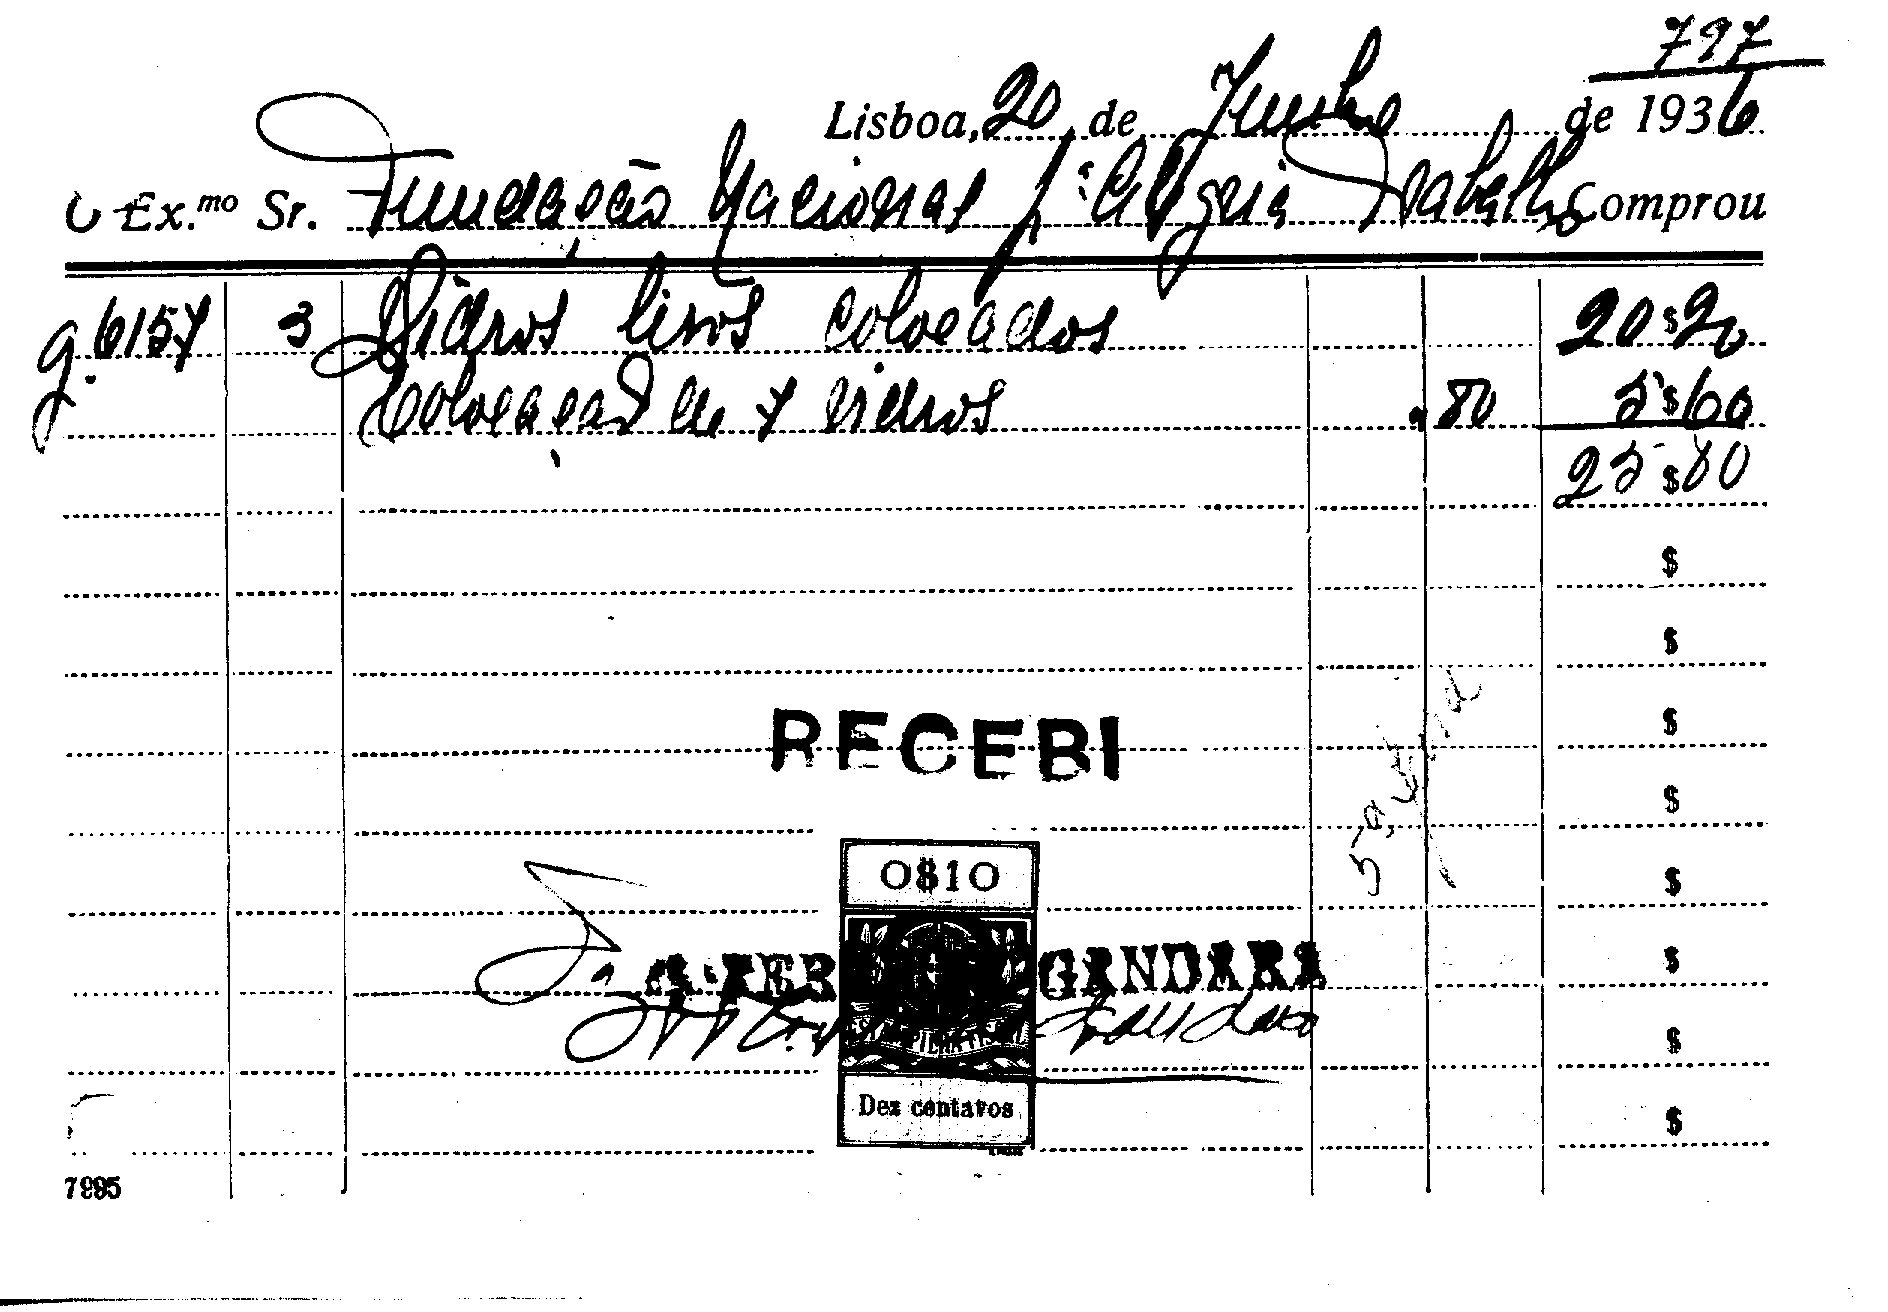 797
Lisboa, 20 de Junho de 1936
O Ex.mo Sr. Fundação Nacional p.ª Alegria Trabalho Comprou
g. 6157 3 Vidros lisos colocados 20$20
Colocação de 7 vidros .80 5$60
25$80
$
$
$
RECEBI
$
0$10
$
GANDARA
$
$
Dez centavos
$
7995